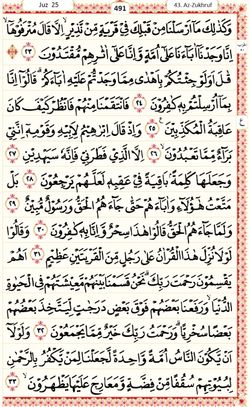 Juz 25
491
43. Az-Zukhruf
وَكَذٰلِكَ مَاۤ اَرْسَلْنَا مِنْ قَبْلِكَ فِيْ قَرْيَةٍ مِّنْ نَّذِيْرٍ اِلَّا قَالَ مُتْرَفُوْهَاۤ
اِنَّا وَجَدْنَاۤ اٰبَآءَنَا عَلٰۤى اُمَّةٍ وَّاِنَّا عَلٰۤى اٰثٰرِهِمْ مُّقْتَدُوْنَ ٢٣
قٰلَ اَوَلَوْ جِئْتُكُمْ بِاَهْدٰى مِمَّا وَجَدْتُّمْ عَلَيْهِ اٰبَآءَكُمْ قَالُوْۤا اِنَّا
بِمَاۤ اُرْسِلْتُمْ بِهٖ كٰفِرُوْنَ ٢٤ فَانْتَقَمْنَا مِنْهُمْ فَانْظُرْ كَيْفَ كَانَ
عَاقِبَةُ الْمُكَذِّبِيْنَ ٢٥ وَاِذْ قَالَ اِبْرٰهِيْمُ لِاَبِيْهِ وَقَوْمِهٖۤ اِنَّنِيْ
بَرَآءٌ مِّمَّا تَعْبُدُوْنَ ٢٦ اِلَّا الَّذِيْ فَطَرَنِيْ فَاِنَّهٗ سَيَهْدِيْنِ ٢٧
وَجَعَلَهَا كَلِمَةًۢ بَاقِيَةً فِيْ عَقِبِهٖ لَعَلَّهُمْ يَرْجِعُوْنَ ٢٨ بَلْ
مَتَّعْتُ هٰۤؤُلَآءِ وَاٰبَآءَهُمْ حَتّٰى جَآءَهُمُ الْحَقُّ وَرَسُوْلٌ مُّبِيْنٌ ٢٩
وَلَمَّا جَآءَهُمُ الْحَقُّ قَالُوْا هٰذَا سِحْرٌ وَّاِنَّا بِهٖ كٰفِرُوْنَ ٣٠ وَقَالُوْا
لَوْلَا نُزِّلَ هٰذَا الْقُرْاٰنُ عَلٰى رَجُلٍ مِّنَ الْقَرْيَتَيْنِ عَظِيْمٍ ٣١ اَهُمْ
يَقْسِمُوْنَ رَحْمَتَ رَبِّكَ نَحْنُ قَسَمْنَا بَيْنَهُمْ مَّعِيْشَتَهُمْ فِي الْحَيٰوةِ
الدُّنْيَا وَرَفَعْنَا بَعْضَهُمْ فَوْقَ بَعْضٍ دَرَجٰتٍ لِّيَتَّخِذَ بَعْضُهُمْ
بَعْضًا سُخْرِيًّا وَرَحْمَتُ رَبِّكَ خَيْرٌ مِّمَّا يَجْمَعُوْنَ ٣٢ وَلَوْلَاۤ
اَنْ يَّكُوْنَ النَّاسُ اُمَّةً وَّاحِدَةً لَّجَعَلْنَا لِمَنْ يَّكْفُرُ بِالرَّحْمٰنِ
لِبُيُوْتِهِمْ سُقُفًا مِّنْ فِضَّةٍ وَّمَعَارِجَ عَلَيْهَا يَظْهَرُوْنَ ٣٣